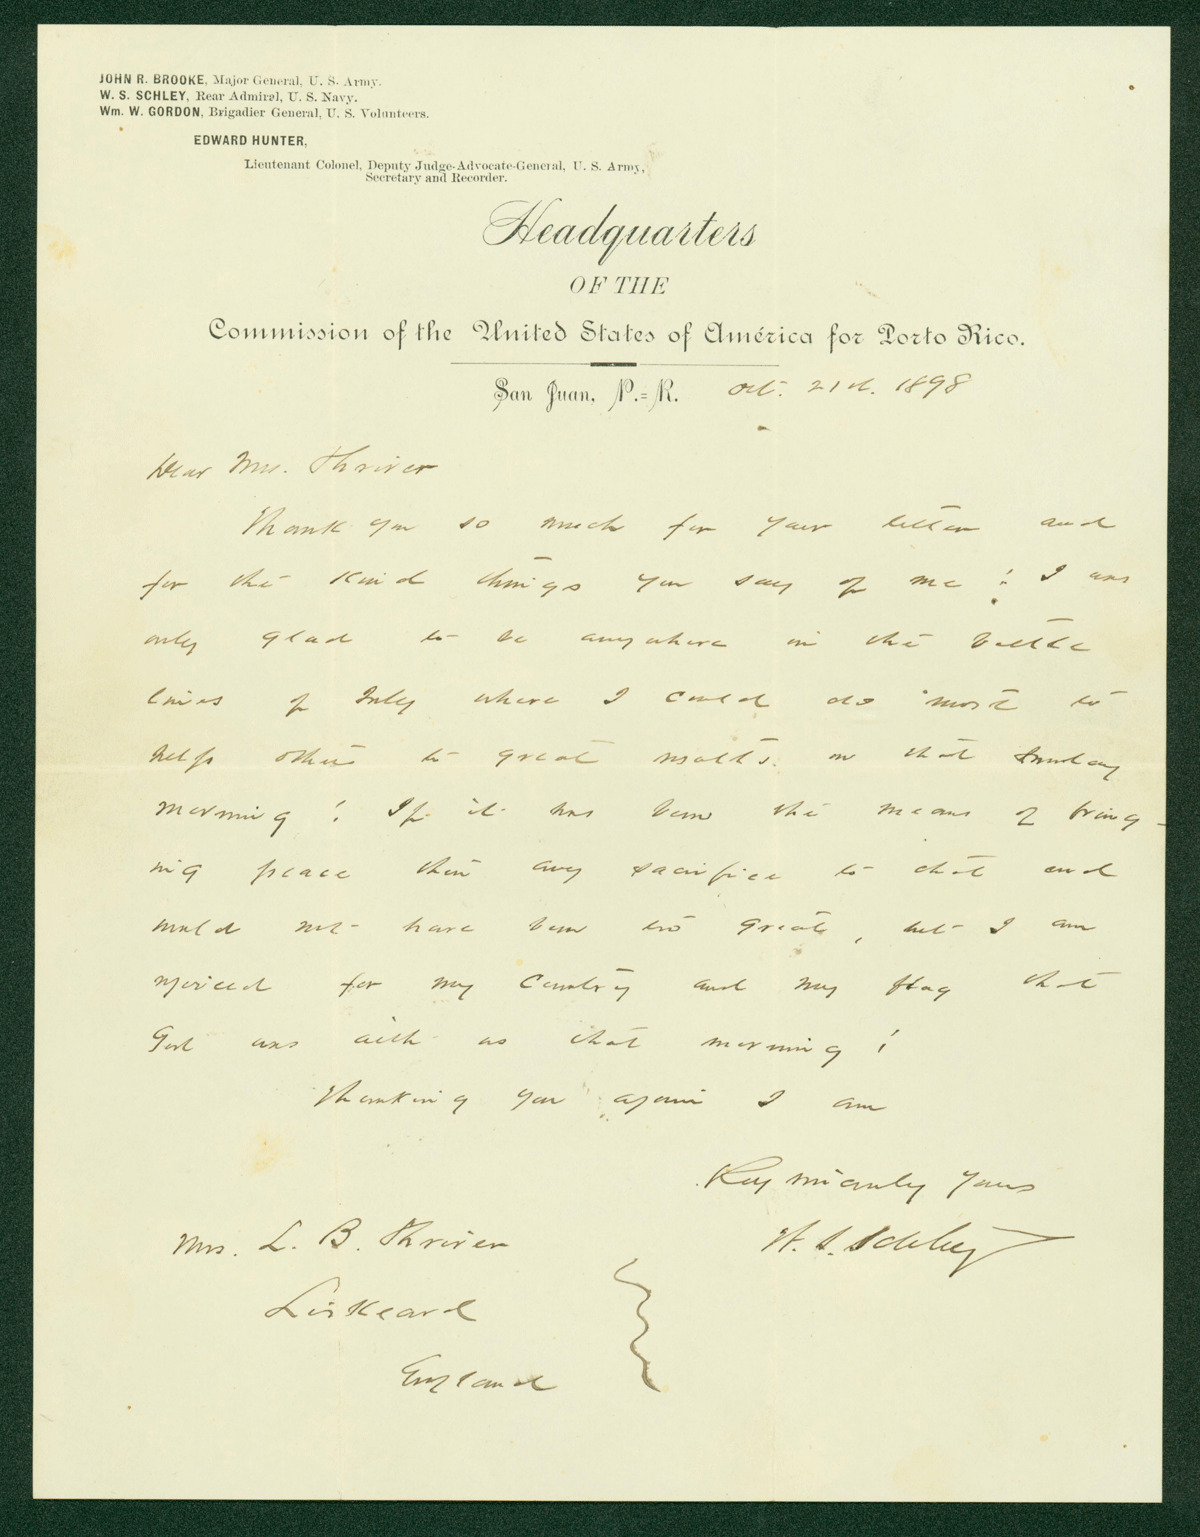 JOHN R. BROOKE, Major General, U. S. Army.
W. S. SCHLEY, Rear Admiral, U. S. Navy.
Wm. W. GORDON, Brigadier General, U. S. Volunteers.
EDWARD HUNTER,
Lieutenant Colonel, Deputy Judge-Advocate-General, U. S. Army,
Secretary and Recorder.
Headquarters
OF THE
Commission of the United States of América for Porto Rico.
San Juan, P.=R. Oct. 21st. 1898
Dear Mrs. Shriver
Thank you so much for your letter and
for the kind things you say of me! I was
only glad to be anywhere in the battle
lines of July where I could do most to
help others to great results on that Sunday
morning! If it has been the means of bring-
ing peace then any sacrifice to that end
would not have been too great, but I am
rejoiced for my Country and my flag that
God was with us that morning!
Thanking you again I am
Very sincerely yours
W. S. Schley
Mrs. L. B. Shriver
Liskeard
England